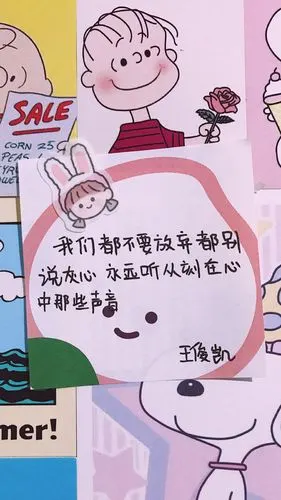 SALE
CORN 25¢
PEAS
mer!
我们都不要放弃都别
说灰心 永远听从刻在心
中那些声音
王俊凯